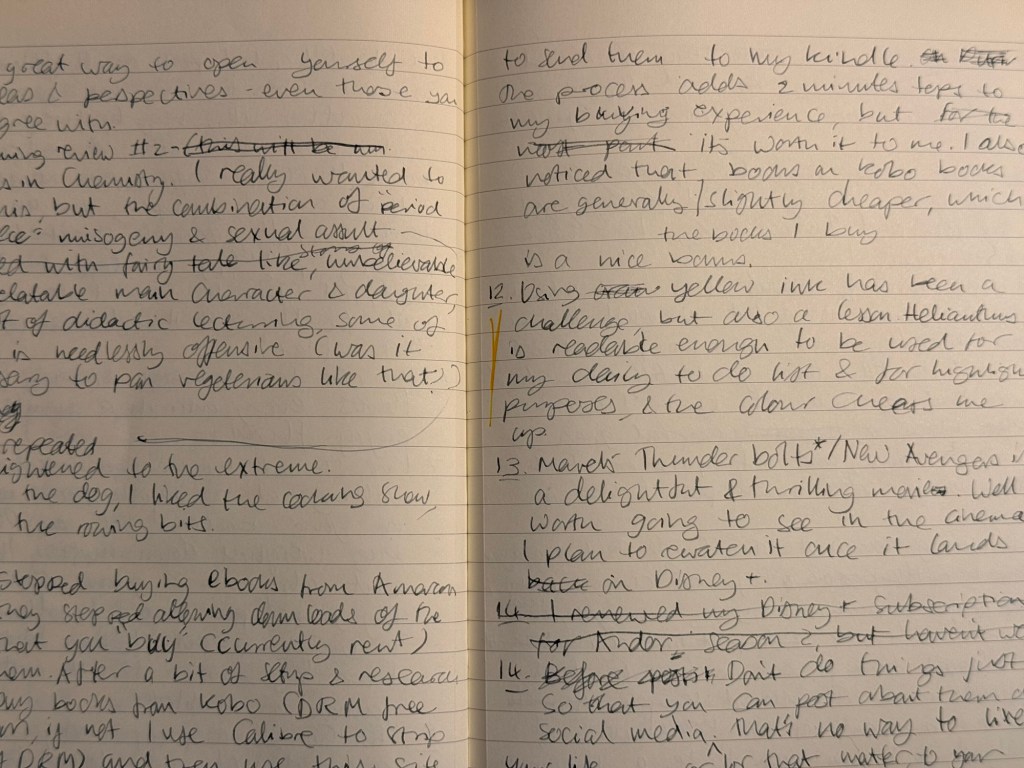 great way to open yourself to
eas & pespectives - even those you
gree with.
ning review #2 - (this will be un
s in Chemistry. I really wanted to
his, but the combination of "period
ece" misogeny & sexual assult
ed with fairy tale like, unbelievable
elatable main character & daughter,
t of didactic lecturing, some of
is needlessly offensive (was it
sary to pan vegeterians like that?)
repeated
ightened to the extreme.
the dog, I liked the cooking show,
the rowing bits.
Stopped buying ebooks from Amazon
they stopped allowing downloads of the
that you "buy" (currently rent)
hem. After a bit of setup & research
buy books from Kobo (DRM free
if not I use Calibre to strip
DRM) and then use this site
to send them to my kindle.
the process adds 2 minutes teps to
my buying experience, but for the
most part its worth it to me. I also
noticed that, books on kobo books
are generally/slightly cheaper, which
the books I buy
is a nice bonus.
12. Using yellow ink has been a
challenge, but also a lesson Helianthus
is readable enough to be used for
my daily to do list & for highligh
purposes, & the colour cheers me
up.
13. Marvel's Thunder bolts*/New Avengers i
a delightful & thrilling movie. Well
worth going to see in the cinema
I plan to rewatch it once it lands
back on Disney+.
14. I renewed my Disney+ subscription
for Andor season 2, but havent wa
14. Before post it Don't do things just
so that you can post about them o
social media. That's no way to live
your life that matter to your